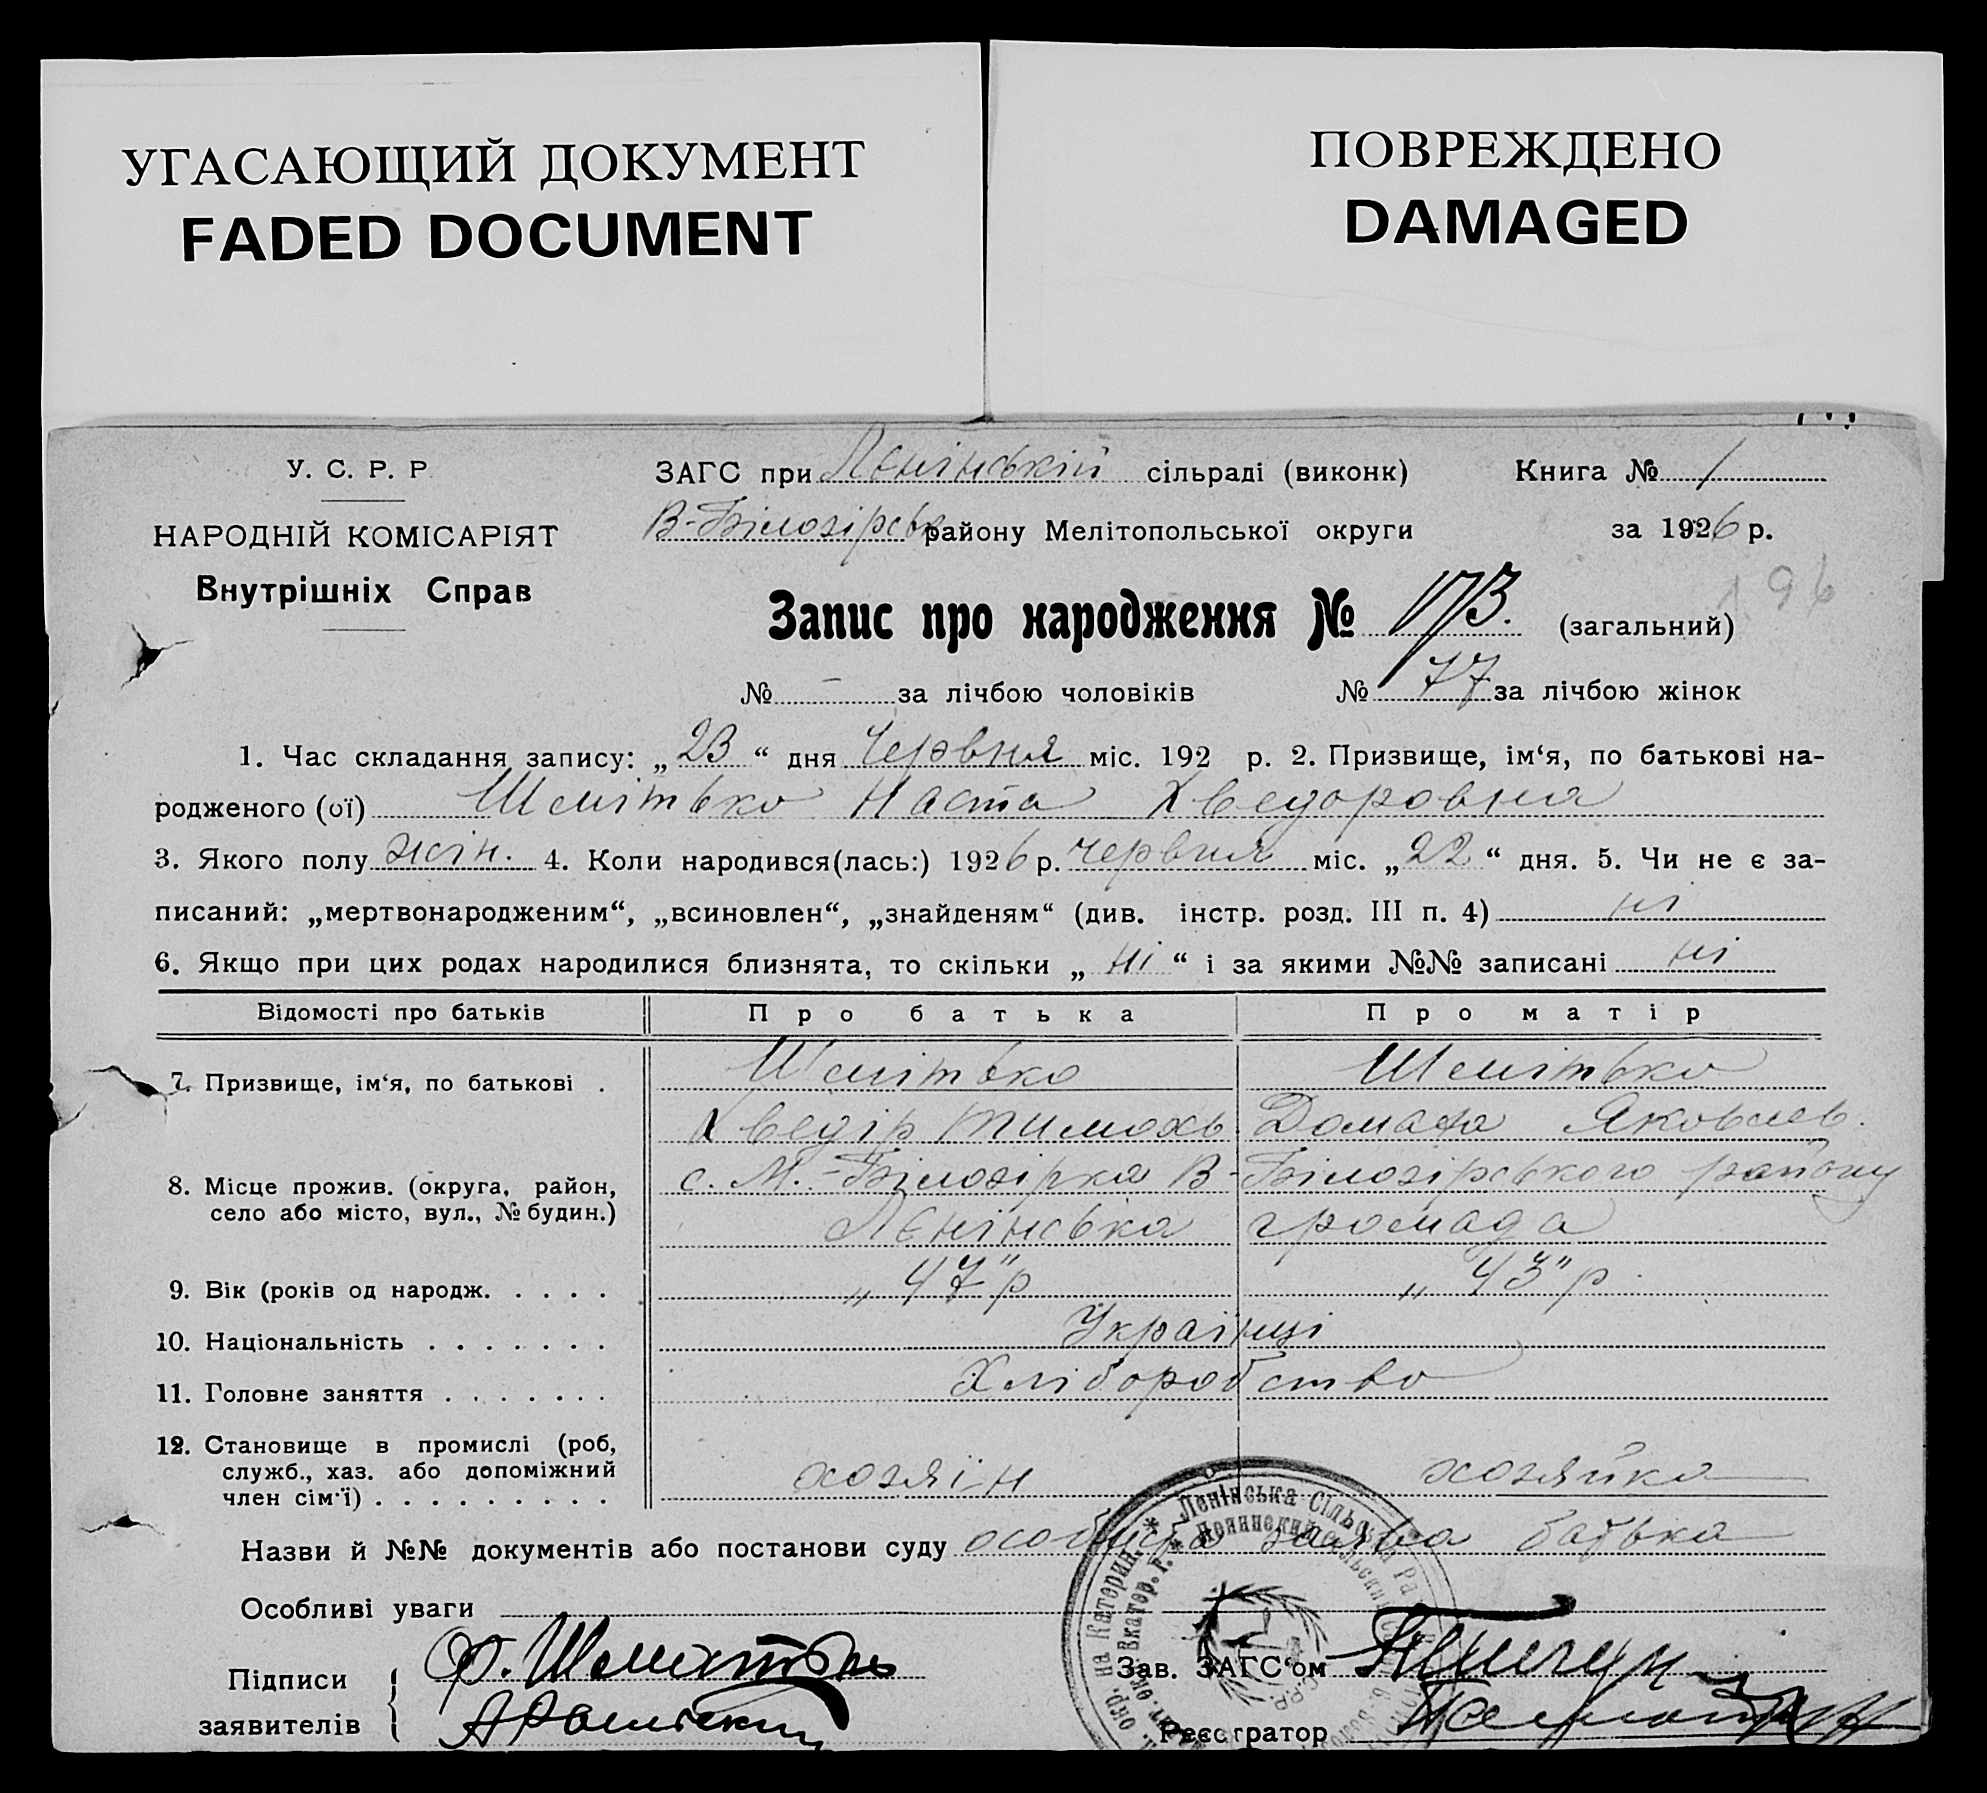 УГАСАЮЩИЙ ДОКУМЕНТ
FADED DOCUMENT
ПОВРЕЖДЕНО
DAMAGED
У. С. Р. Р
НАРОДНІЙ КОМІСАРІЯТ
Внутрішніх Справ
ЗАГС при Ленінській сільраді (виконк) Книга № 1
В-Білозірськ району Мелітопольської округи за 1926 р.
196
Запис про народження № 173. (загальний)
№ - за лічбою чоловіків № 77 за лічбою жінок
1. Час складання запису: „23“ дня Червня міс. 192 р. 2. Призвище, ім‘я, по батькові на-
родженого (ої) Шемітько Наста Хведоровна
3. Якого полу жін. 4. Коли народився(лась:) 1926 р. червня міс. „22“ дня. 5. Чи не є за-
писаний: „мертвонародженим“, „всиновлен“, „знайденям“ (див. інстр. розд. III п. 4) ні
6. Якщо при цих родах народилися близнята, то скільки „ні“ і за якими №№ записані ні
Відомості про батьків Про батька Про матір
7. Призвище, ім‘я, по батькові . Шемітько Шемітько
Хведір Тимохв Домаха Яковлев.
8. Місце прожив. (округа, район, с. М.-Білозірка В-Білозірського району
село або місто, вул., № будин.) Ленінська громада
9. Вік (років од народж. . . . . „47“р „43“р.
10. Національність . . . . . . . Українці
11. Головне заняття . . . . . . . Хліборобство
12. Становище в промислі (роб,
служб., хаз. або допоміжний хозяїн хозяйка
член сім‘ї) . . . . . . . . .
Назви й №№ документів або постанови суду особиста заява батька
Особливі уваги
Підписи
заявителів
Зав. ЗАГС‘ом
Реєстратор
Ленінська Сільська Ра